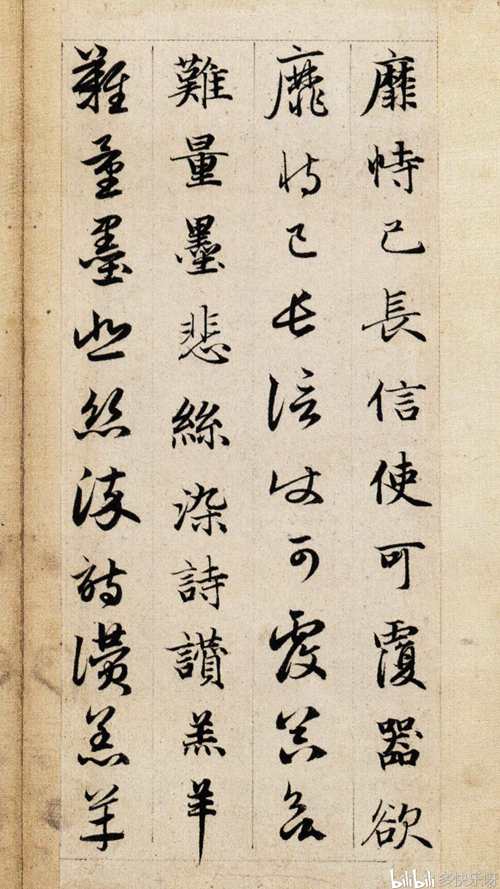 靡恃己長信使可覆器欲
靡恃己長信使可覆器欲
難量墨悲絲染詩讚羔羊
難量墨悲絲染詩讚羔羊
bilibili 多快乐呀